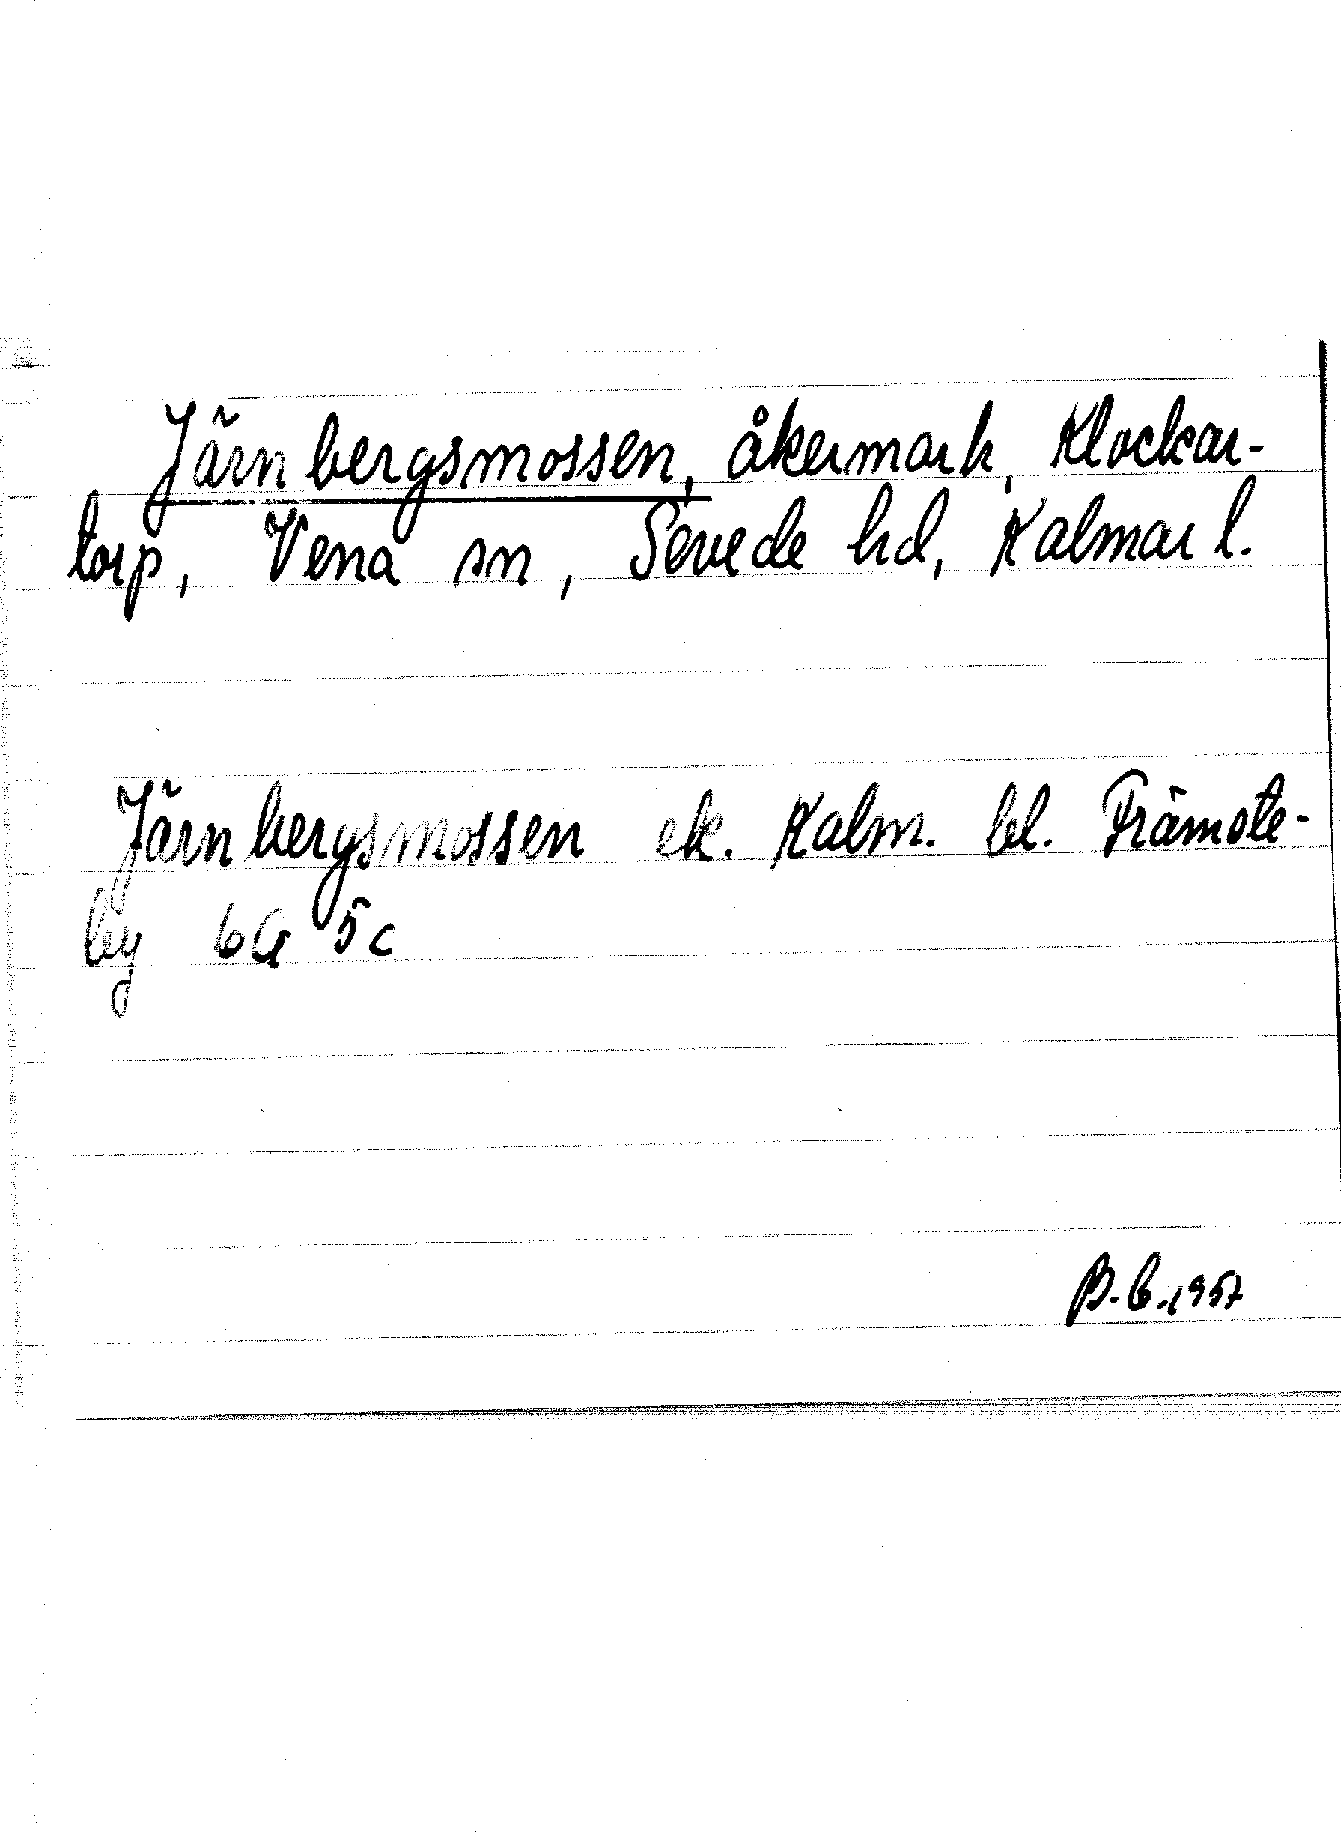 Järnbergsmossen, åkermark, Klockar-
torp, Vena sn, Sevede hd, Kalmar l.
Järnbergsmossen ek. Kalm. bl. Främste-
by 6G 5c
B.E. 1957